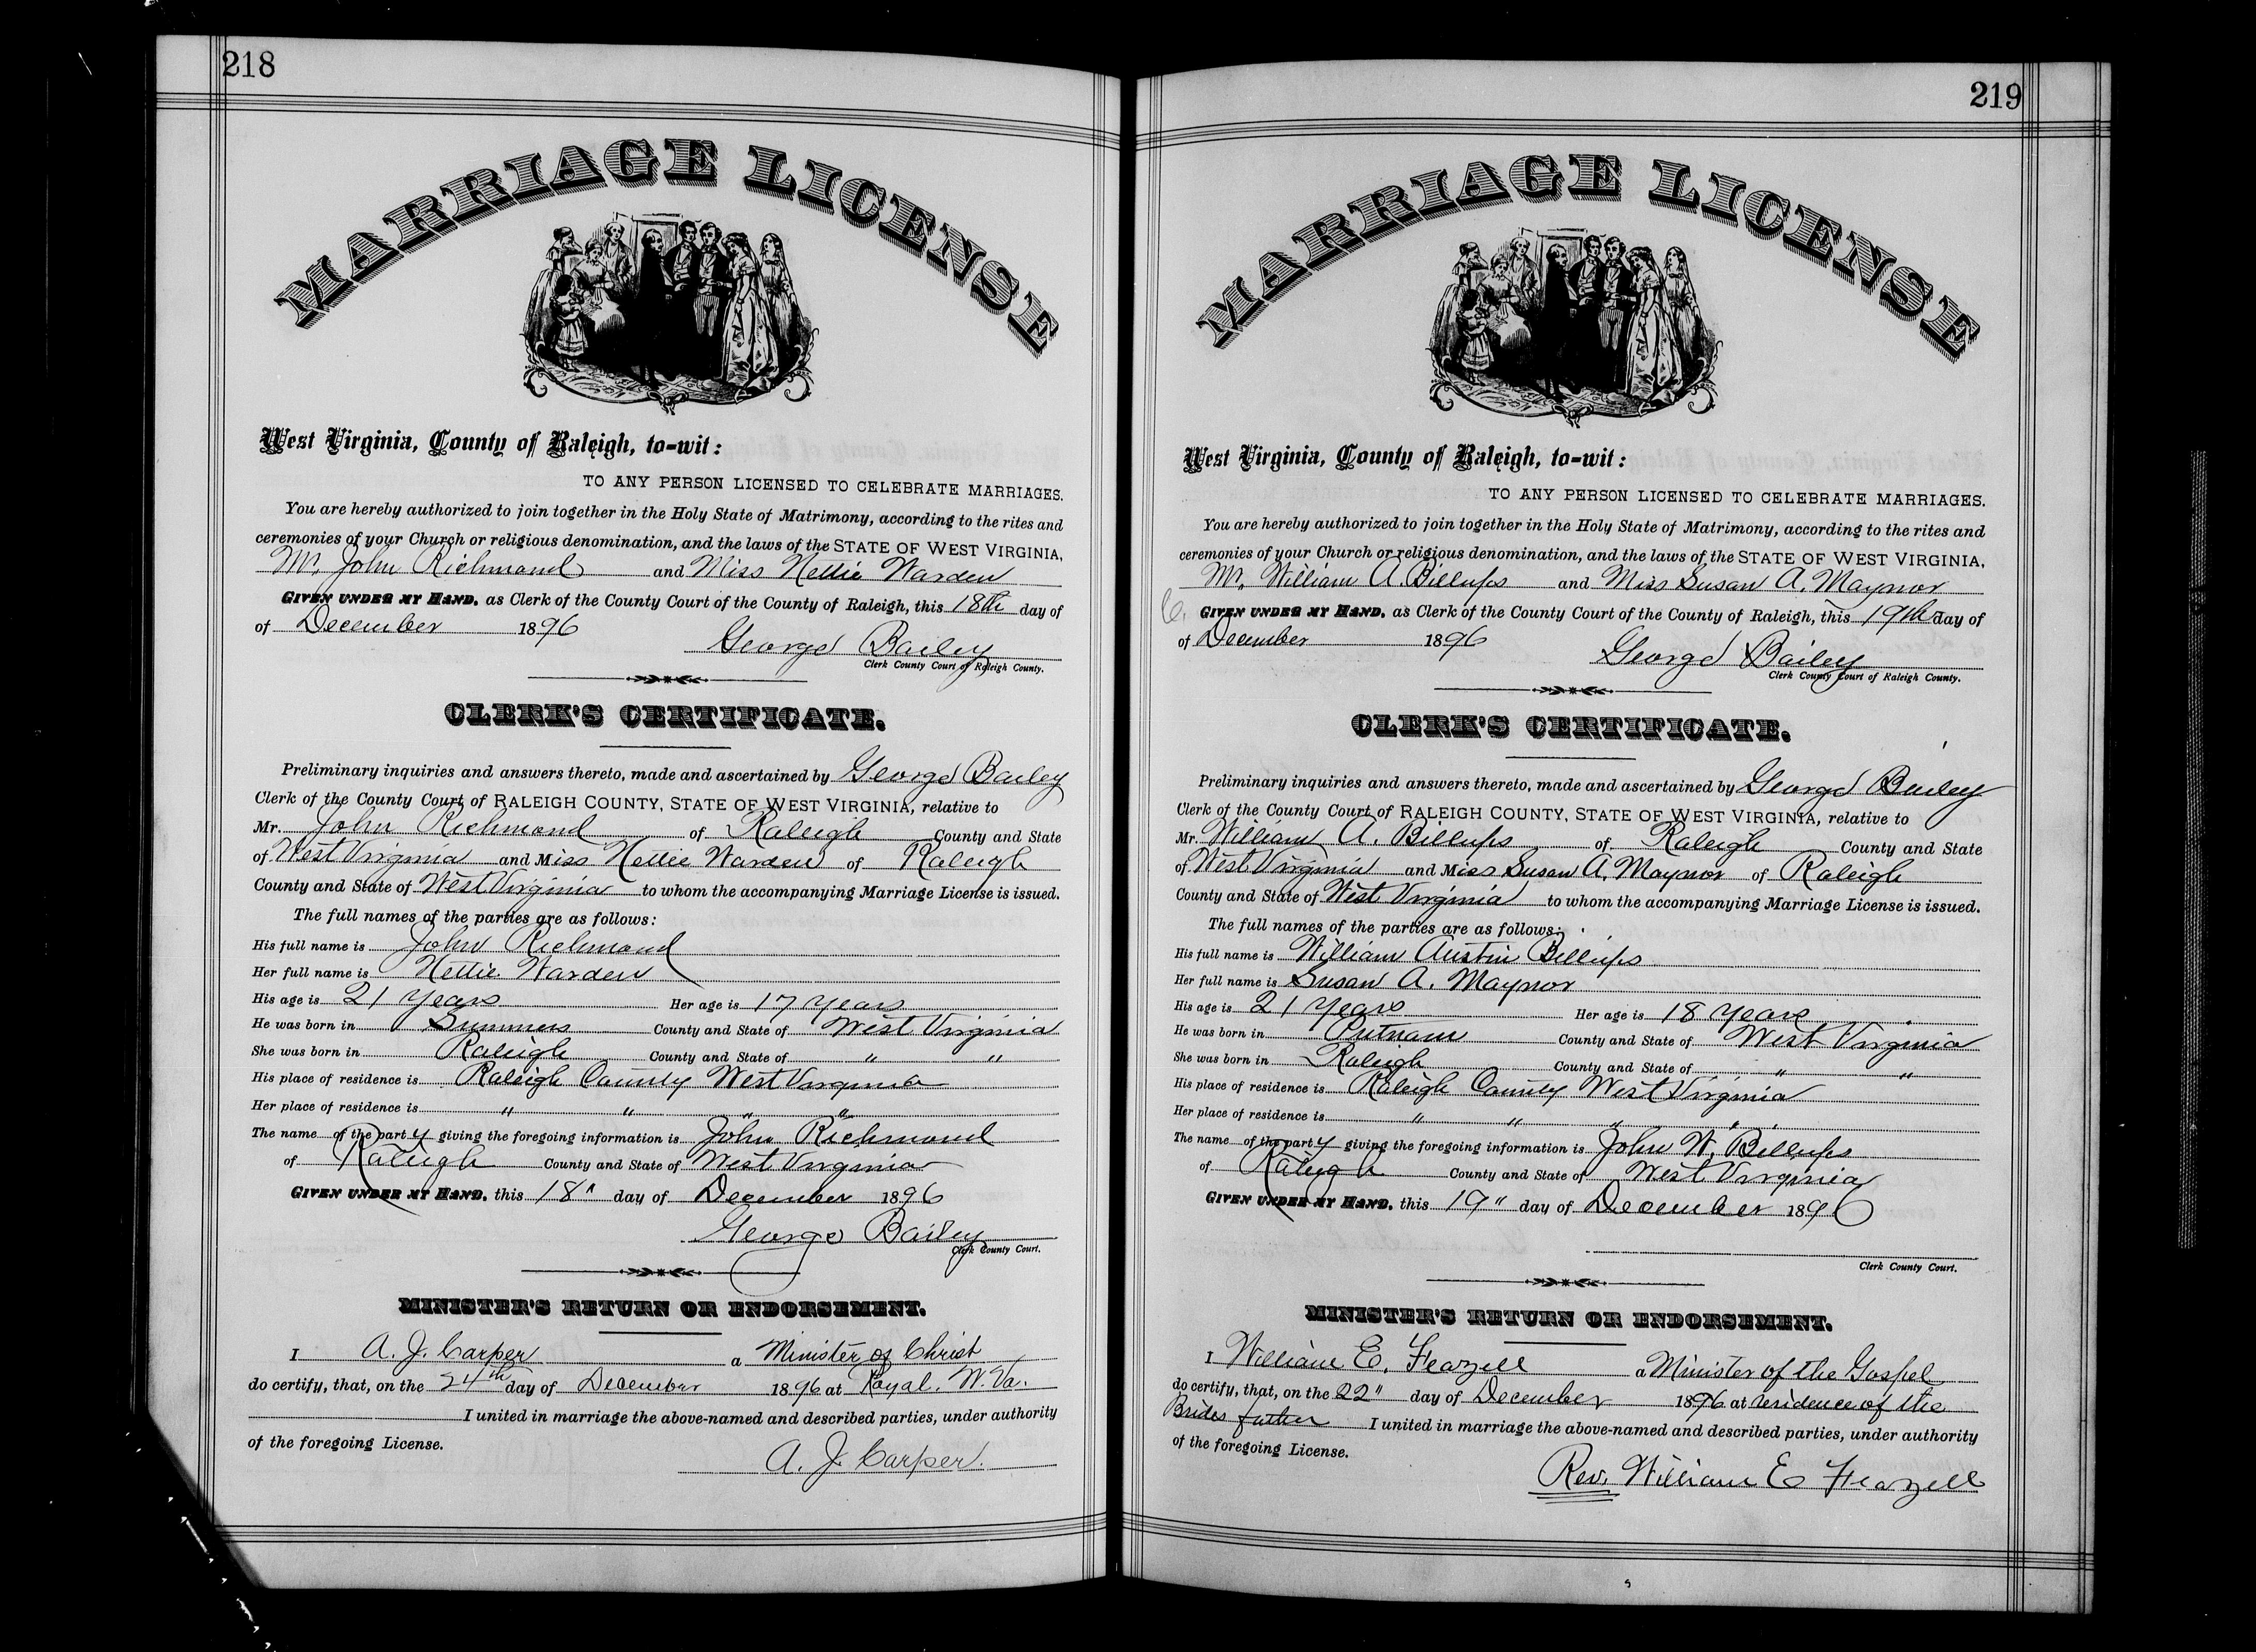 218
MARRIAGE LICENSE
West Virginia, County of Raleigh, to-wit:
TO ANY PERSON LICENSED TO CELEBRATE MARRIAGES.
You are hereby authorized to join together in the Holy State of Matrimony, according to the rites and
ceremonies of your Church or religious denomination, and the laws of the STATE OF WEST VIRGINIA,
Mr. John Richmond and Miss Nettie Warden
GIVEN UNDER MY HAND, as Clerk of the County Court of the County of Raleigh, this 18th day of
of December 1896
George Bailey
Clerk County Court of Raleigh County.
CLERK'S CERTIFICATE.
Preliminary inquiries and answers thereto, made and ascertained by George Bailey
Clerk of the County Court of RALEIGH COUNTY, STATE OF WEST VIRGINIA, relative to
Mr. John Richmond of Raleigh County and State
of West Virginia and Miss Nettie Warden of Raleigh
County and State of West Virginia to whom the accompanying Marriage License is issued.
The full names of the parties are as follows:
His full name is John Richmond
Her full name is Nettie Warden
His age is 21 years Her age is 17 years
He was born in Summers County and State of West Virginia
She was born in Raleigh County and State of " "
His place of residence is Raleigh County West Virginia
Her place of residence is " " " "
The name of the party giving the foregoing information is John Richmond
of Raleigh County and State of West Virginia
GIVEN UNDER MY HAND, this 18" day of December 1896
George Bailey
Clerk County Court.
MINISTER'S RETURN OR ENDORSEMENT.
I A. J. Carper a Minister of Christ
do certify, that, on the 24th day of December 1896 at Royal, W. Va.
I united in marriage the above-named and described parties, under authority
of the foregoing License.
A. J. Carper.
219
MARRIAGE LICENSE
West Virginia, County of Raleigh, to-wit:
TO ANY PERSON LICENSED TO CELEBRATE MARRIAGES.
You are hereby authorized to join together in the Holy State of Matrimony, according to the rites and
ceremonies of your Church or religious denomination, and the laws of the STATE OF WEST VIRGINIA,
Mr. William A. Billups and Miss Susan A. Maynor
GIVEN UNDER MY HAND, as Clerk of the County Court of the County of Raleigh, this 19th day of
of December 1896
George Bailey
Clerk County Court of Raleigh County.
CLERK'S CERTIFICATE.
Preliminary inquiries and answers thereto, made and ascertained by George Bailey
Clerk of the County Court of RALEIGH COUNTY, STATE OF WEST VIRGINIA, relative to
Mr. William A. Billups of Raleigh County and State
of West Virginia and Miss Susan A. Maynor of Raleigh
County and State of West Virginia to whom the accompanying Marriage License is issued.
The full names of the parties are as follows:
His full name is William Austin Billups
Her full name is Susan A. Maynor
His age is 21 years Her age is 18 years
He was born in Putnam County and State of West Virginia
She was born in Raleigh County and State of " "
His place of residence is Raleigh County West Virginia
Her place of residence is " " " "
The name of the party giving the foregoing information is John W. Billups
of Raleigh County and State of West Virginia
GIVEN UNDER MY HAND, this 19" day of December 1896
Clerk County Court.
MINISTER'S RETURN OR ENDORSEMENT.
I William E. Feazell a Minister of the Gospel
do certify, that, on the 22" day of December 1896 at residence of the
Brides father I united in marriage the above-named and described parties, under authority
of the foregoing License.
Rev. William E Feazell